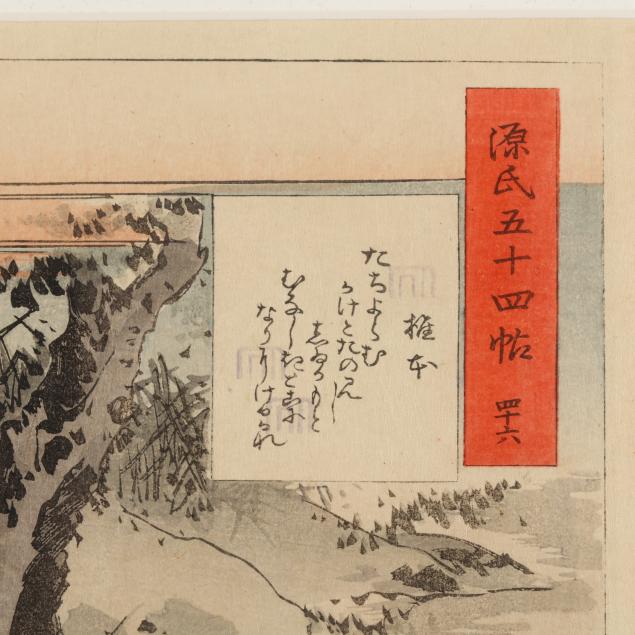 源氏五十四帖 四十六
椎本
たちよらむ
かけとたのみし
しゐかもと
むなしきとこに
なりにけるかな